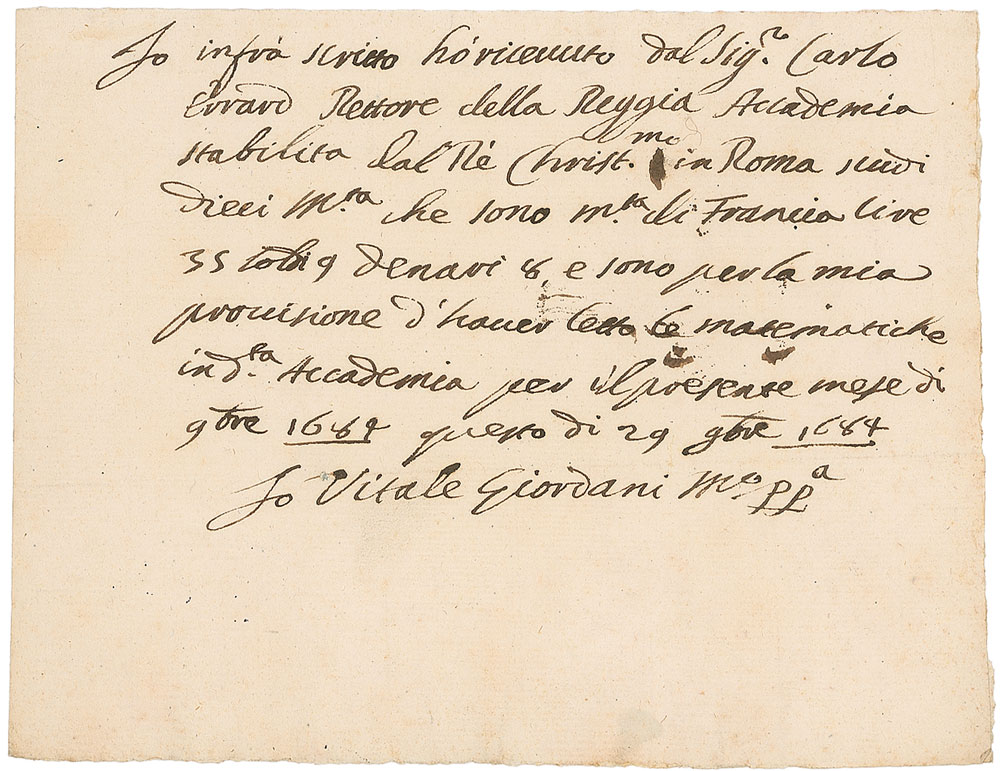 Io infrà scritto hò riceuuto dal Sig.r Carlo
Errard Rettore della Reggia Accademia
stabilita dal Rè Christ.mo in Roma scudi
dieci m.ta che sono m.ta di Francia lire
35 soldi 9 denari 8, e sono per la mia
prouisione d'hauer letto le matematiche
in d.ta Accademia per il presente mese di
9bre 1684 questo dì 29 9bre 1684
Io Vitale Giordani Mo PPa